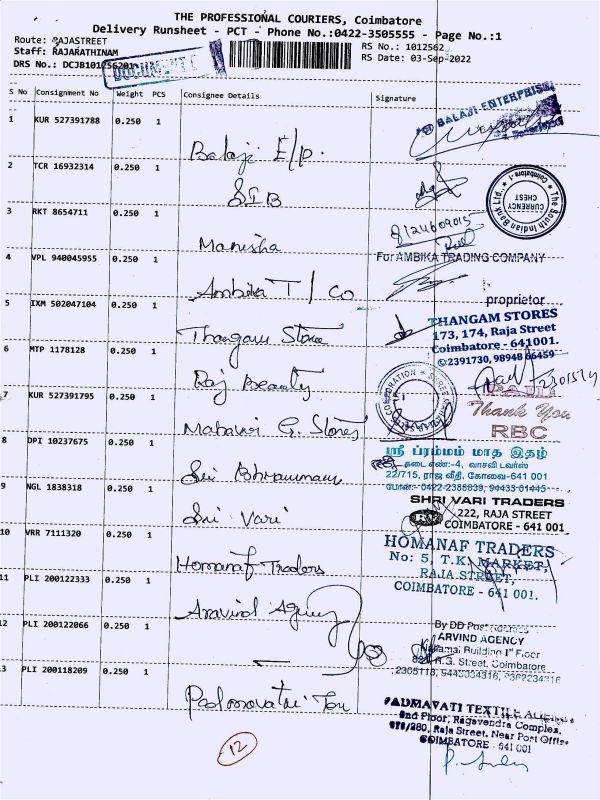 THE PROFESSIONAL COURIERS, Coimbatore
Delivery Runsheet - PCT - Phone No.:0422-3505555 - Page No.:1
Route: RAJASTREET
RS No.: 1012562
Staff: RAJARATHINAM
RS Date: 03-Sep-2022
DRS No.: DCJB101256201
DOCUMENT
S No Consignment No Weight PCS Consignee Details Signature
1 KUR 527391788 0.250 1 Balaji E/p.
BALAJI ENTERPRISE
2 TCR 16932314 0.250 1 SIB
The South Indian Bank Ltd.
CURRENCY CHEST
Coimbatore-1
3 RKT 8654711 0.250 1 Manisha
8124609015
4 VPL 940045955 0.250 1 Ambika T/Co
For AMBIKA TRADING COMPANY
proprietor
5 IXM 502047104 0.250 1 Thangam Store
THANGAM STORES
173, 174, Raja Street
Coimbatore - 641001.
2391730, 98948 66459
6 MTP 1178128 0.250 1 Raj Beauty
7 KUR 527391795 0.250 1 Mahavi G. Stores
Thank You
RBC
8 DPI 10237675 0.250 1 Sri Bhrammam
ஸ்ரீ ப்ரம்மம் மாத இதழ்
கடை எண்:-4, வாசவி டவர்ஸ்
22/715, ராஜ வீதி, கோவை-641 001
போன்:- 0422-2385839, 94433-81445
9 NGL 1838318 0.250 1 Sri Vari
SHRI VARI TRADERS
222, RAJA STREET
COIMBATORE - 641 001
10 VRR 7111320 0.250 1 Homanaf Traders
HOMANAF TRADERS
No: 5, T.K. MARKET,
RAJA STREET,
COIMBATORE - 641 001.
11 PLI 200122333 0.250 1 Aravind Agency
12 PLI 200122066 0.250 1
ARVIND AGENCY
Building 1st Floor
R.G. Street, Coimbatore
13 PLI 200118209 0.250 1 Padmavathi Tex
PADMAVATI TEXTILE AGENCY
2nd Floor, Ragavendra Complex,
Raja Street, Near Post Office
COIMBATORE - 641 001
12